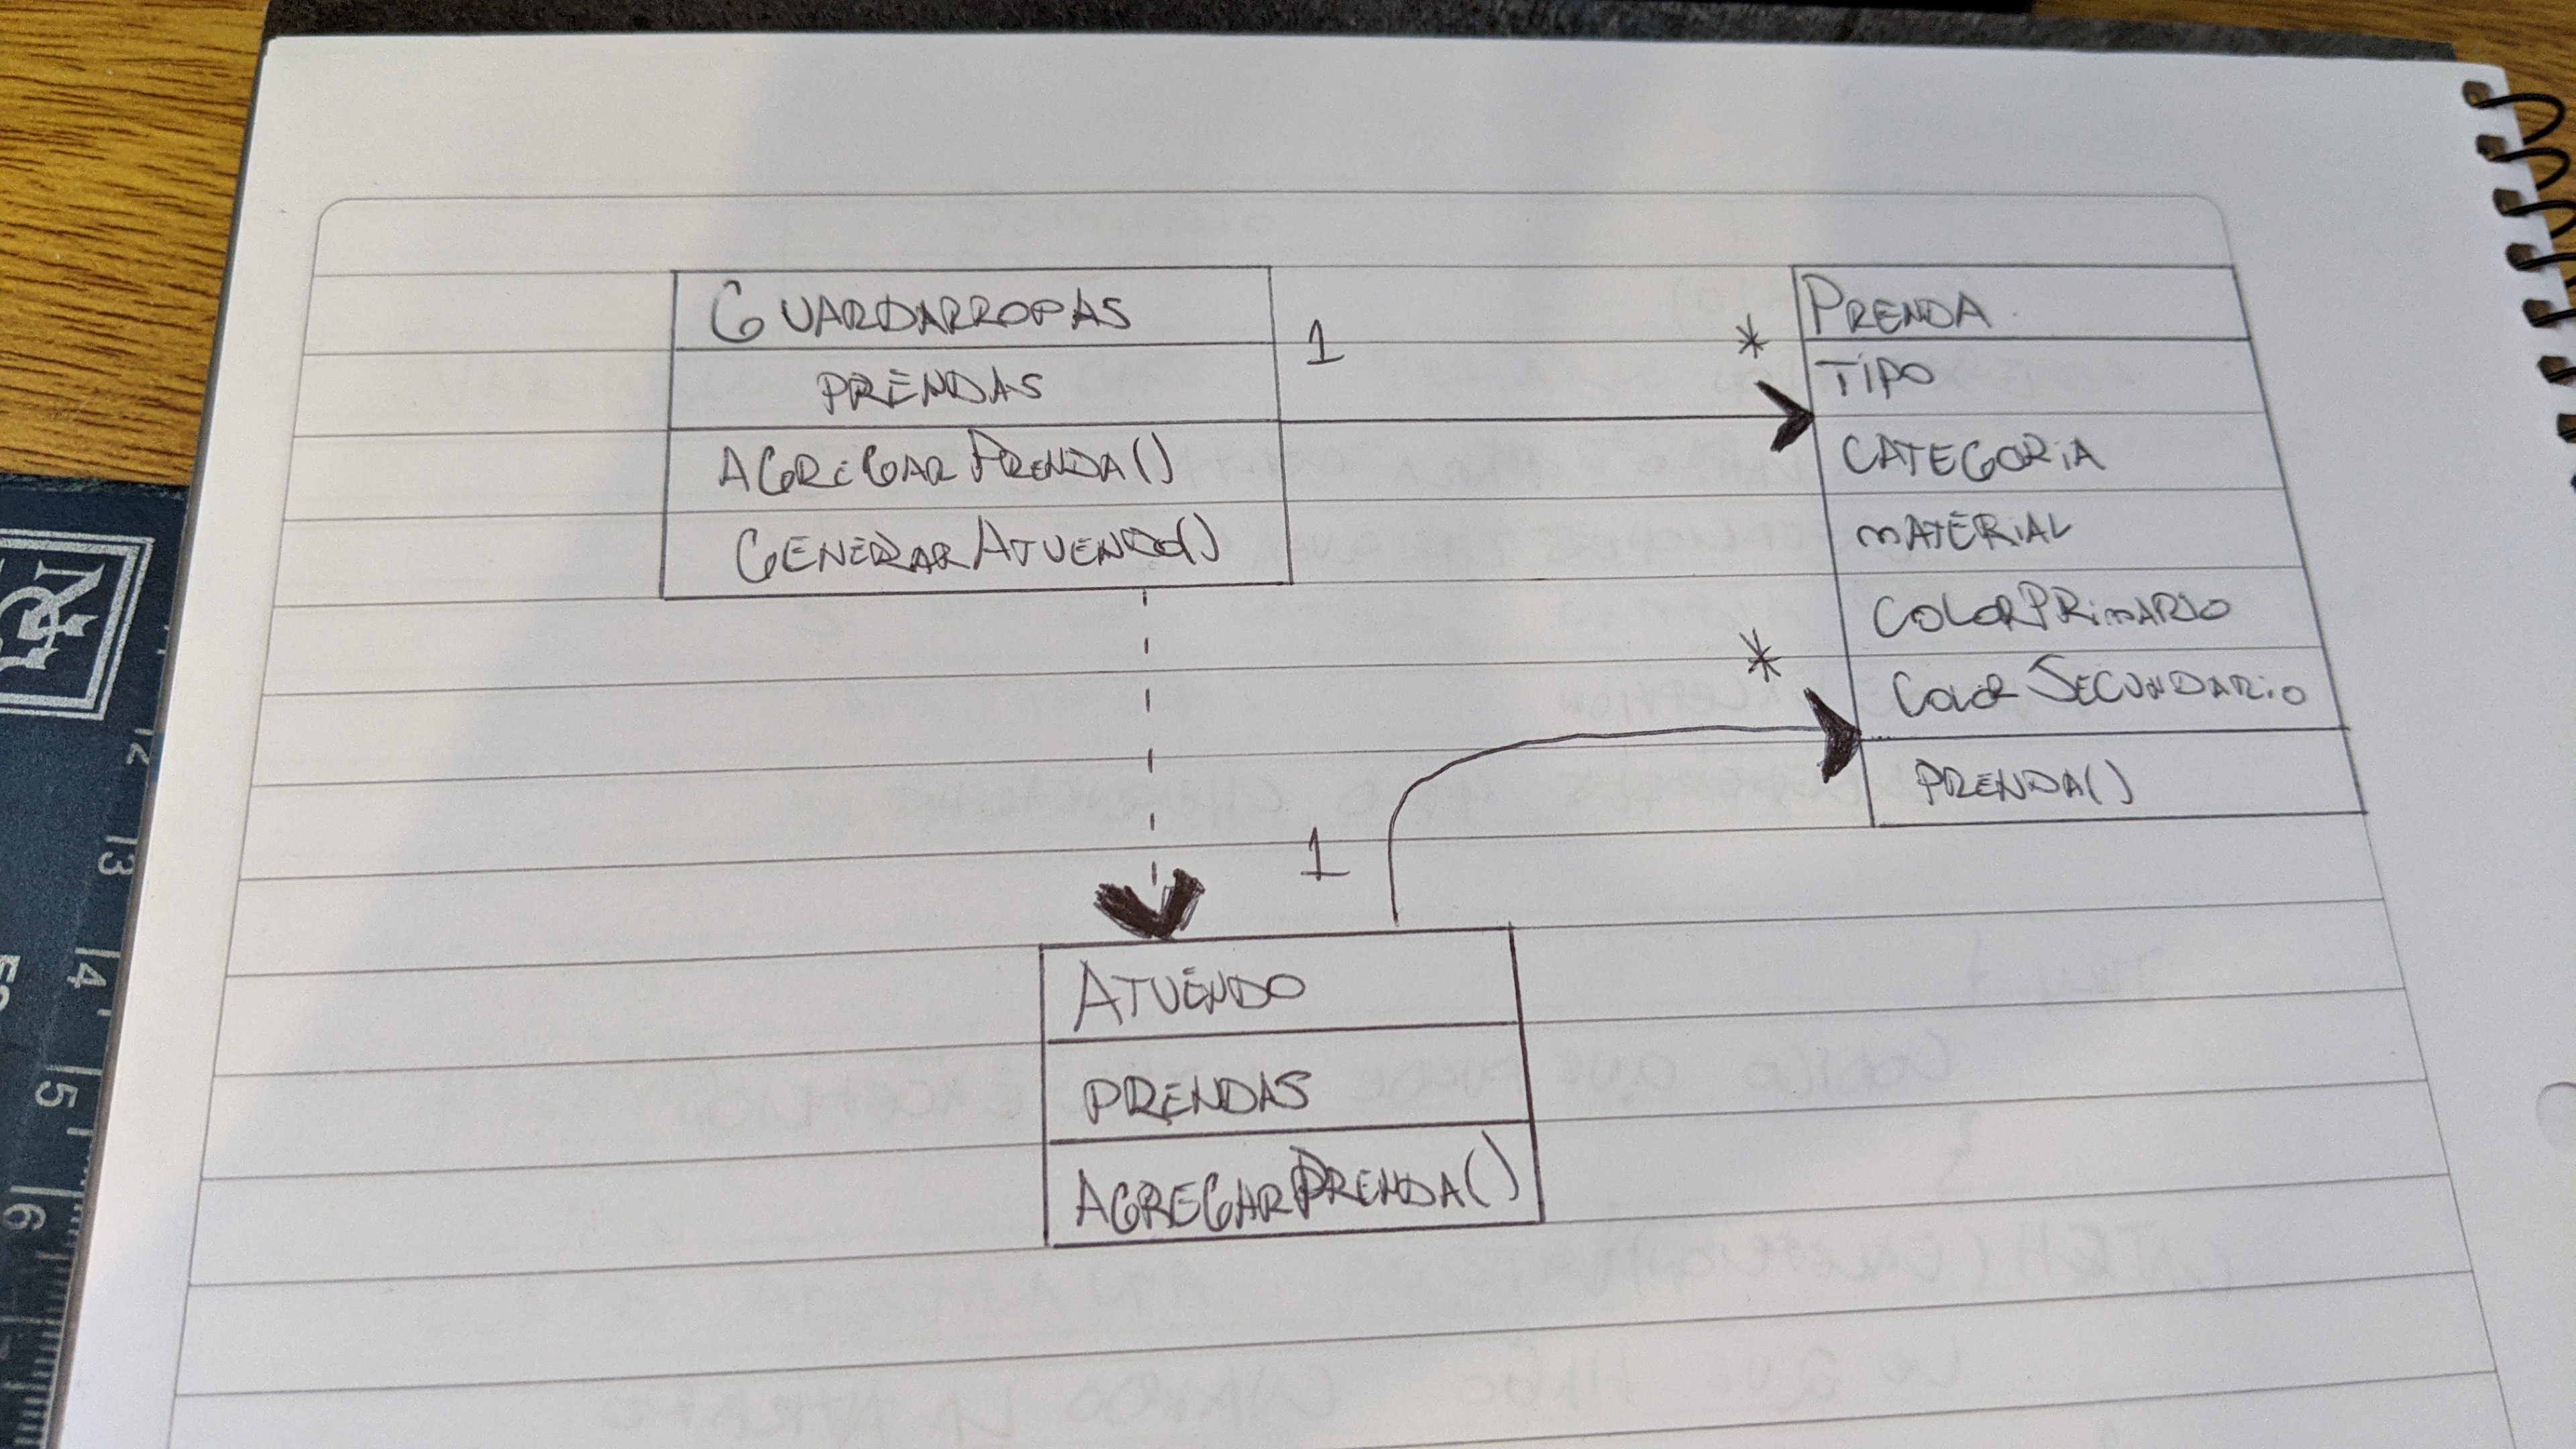 GUARDARROPAS
PRENDAS
AGREGARPRENDA()
GENERARATUENDO()
1
*
PRENDA
TIPO
CATEGORIA
MATERIAL
COLORPRIMARIO
COLORSECUNDARIO
PRENDA()
*
1
ATUENDO
PRENDAS
AGREGARPRENDA()
12
13
14
15
16